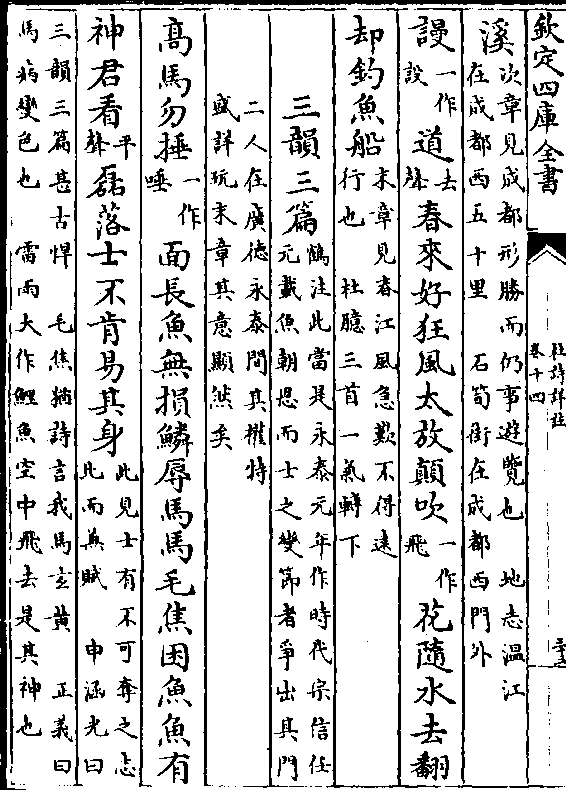 欽定四庫全書
杜詩詳註
卷十四
溪次章見成都形勝而仍事遊覽也 地志溫江
在成都西五十里 石筍街在成都西門外
謾一作設道去聲春來好狂風太放顛吹一作飛花隨水去翻
却釣魚船末章見春江風急歎不得遠
行也 杜臆三首一氣轉下
三韻三篇鶴注此當是永泰元年作時代宗信任
元載魚朝恩而士之變節者爭出其門
二人在廣德永泰間其權特
盛詳玩末章其意顯然矣
高馬勿捶一作唾面長魚無損鱗辱馬馬毛焦困魚魚有
神君看平聲磊落士不肯易其身此見士有不可奪之志
比而兼賦 申涵光曰
三韻三篇甚古悍 毛焦猶詩言我馬玄黃 正義曰
馬病變色也 雷雨大作鯉魚空中飛去是其神也